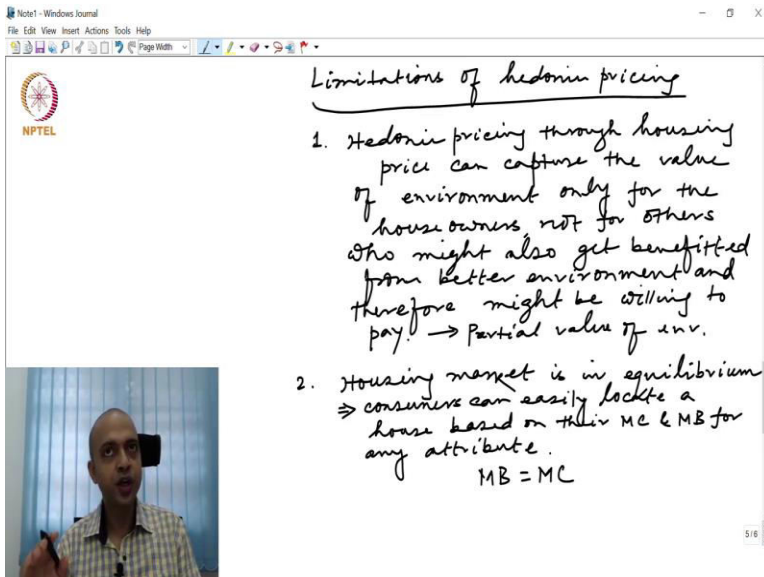 Note1 - Windows Journal
File Edit View Insert Actions Tools Help
Page Width
NPTEL
Limitations of hedonic pricing
1. Hedonic pricing through housing
price can capture the value
of environment only for the
house owners, not for others
who might also get benefitted
from better environment and
therefore might be willing to
pay. → Partial value of env.
2. Housing market is in equilibrium
⇒ consumers can easily locate a
house based on their MC & MB for
any attribute.
MB = MC
5/6